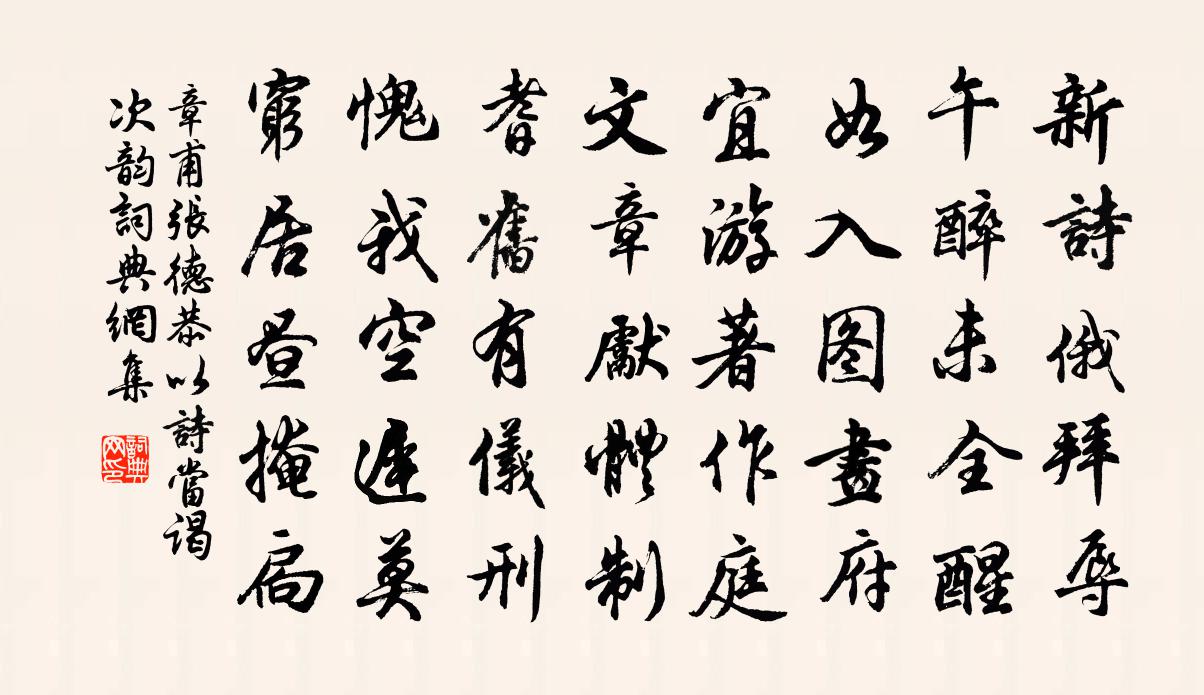 新詩俄拜辱
午醉未全醒
如入图畫府
宜游著作庭
文章獻體制
耆舊有儀刑
愧我空遲莫
窮居昼掩扃
章甫張德恭以詩當谒
次韵詞典網集
詞典网印